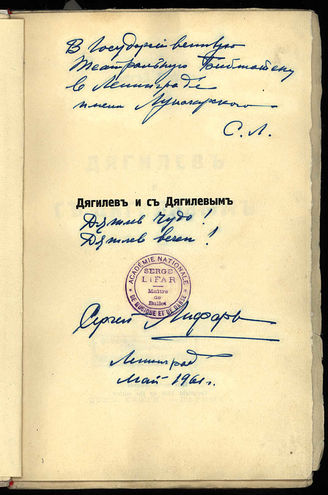 В Государственную
Театральную Библиотеку
в Ленинграде
имени Луначарского
С. Л.
Дягилевъ и съ Дягилевымъ
Дягилев чудо!
Дягилев вечен!
ACADÉMIE NATIONALE
DE MUSIQUE ET DE DANSE
SERGE
LIFAR
Maître
de
Ballet
Сергей Лифарь
Ленинград
Май 1961 г.